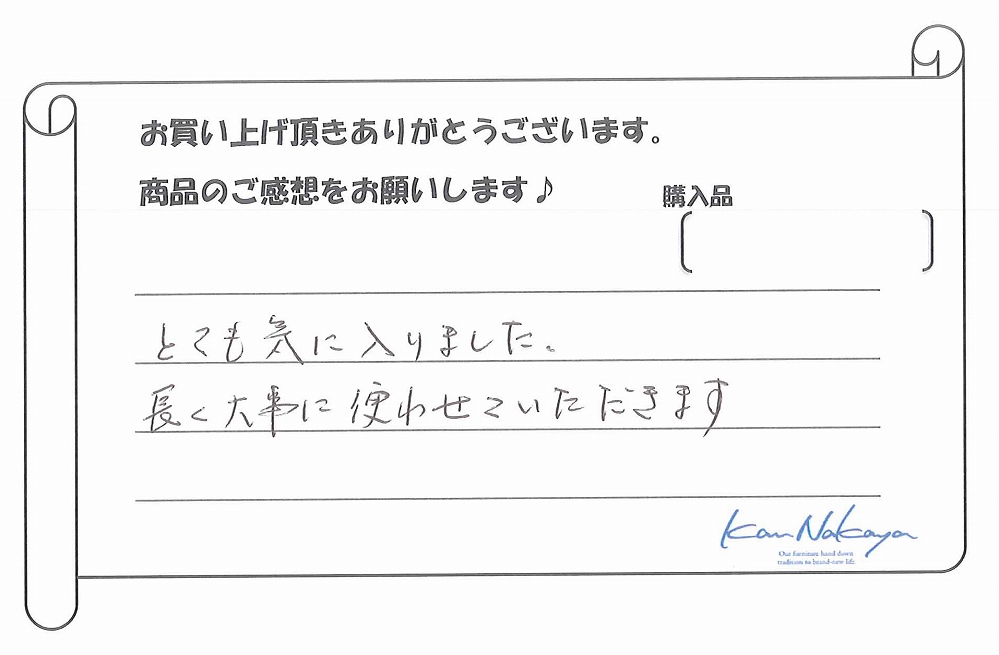 お買い上げ頂きありがとうございます。
商品のご感想をお願いします♪
購入品
とても気に入りました。
長く大事に使わせていただきます
Kan Nakaya
Our furniture hand down
tradition to brand-new life.